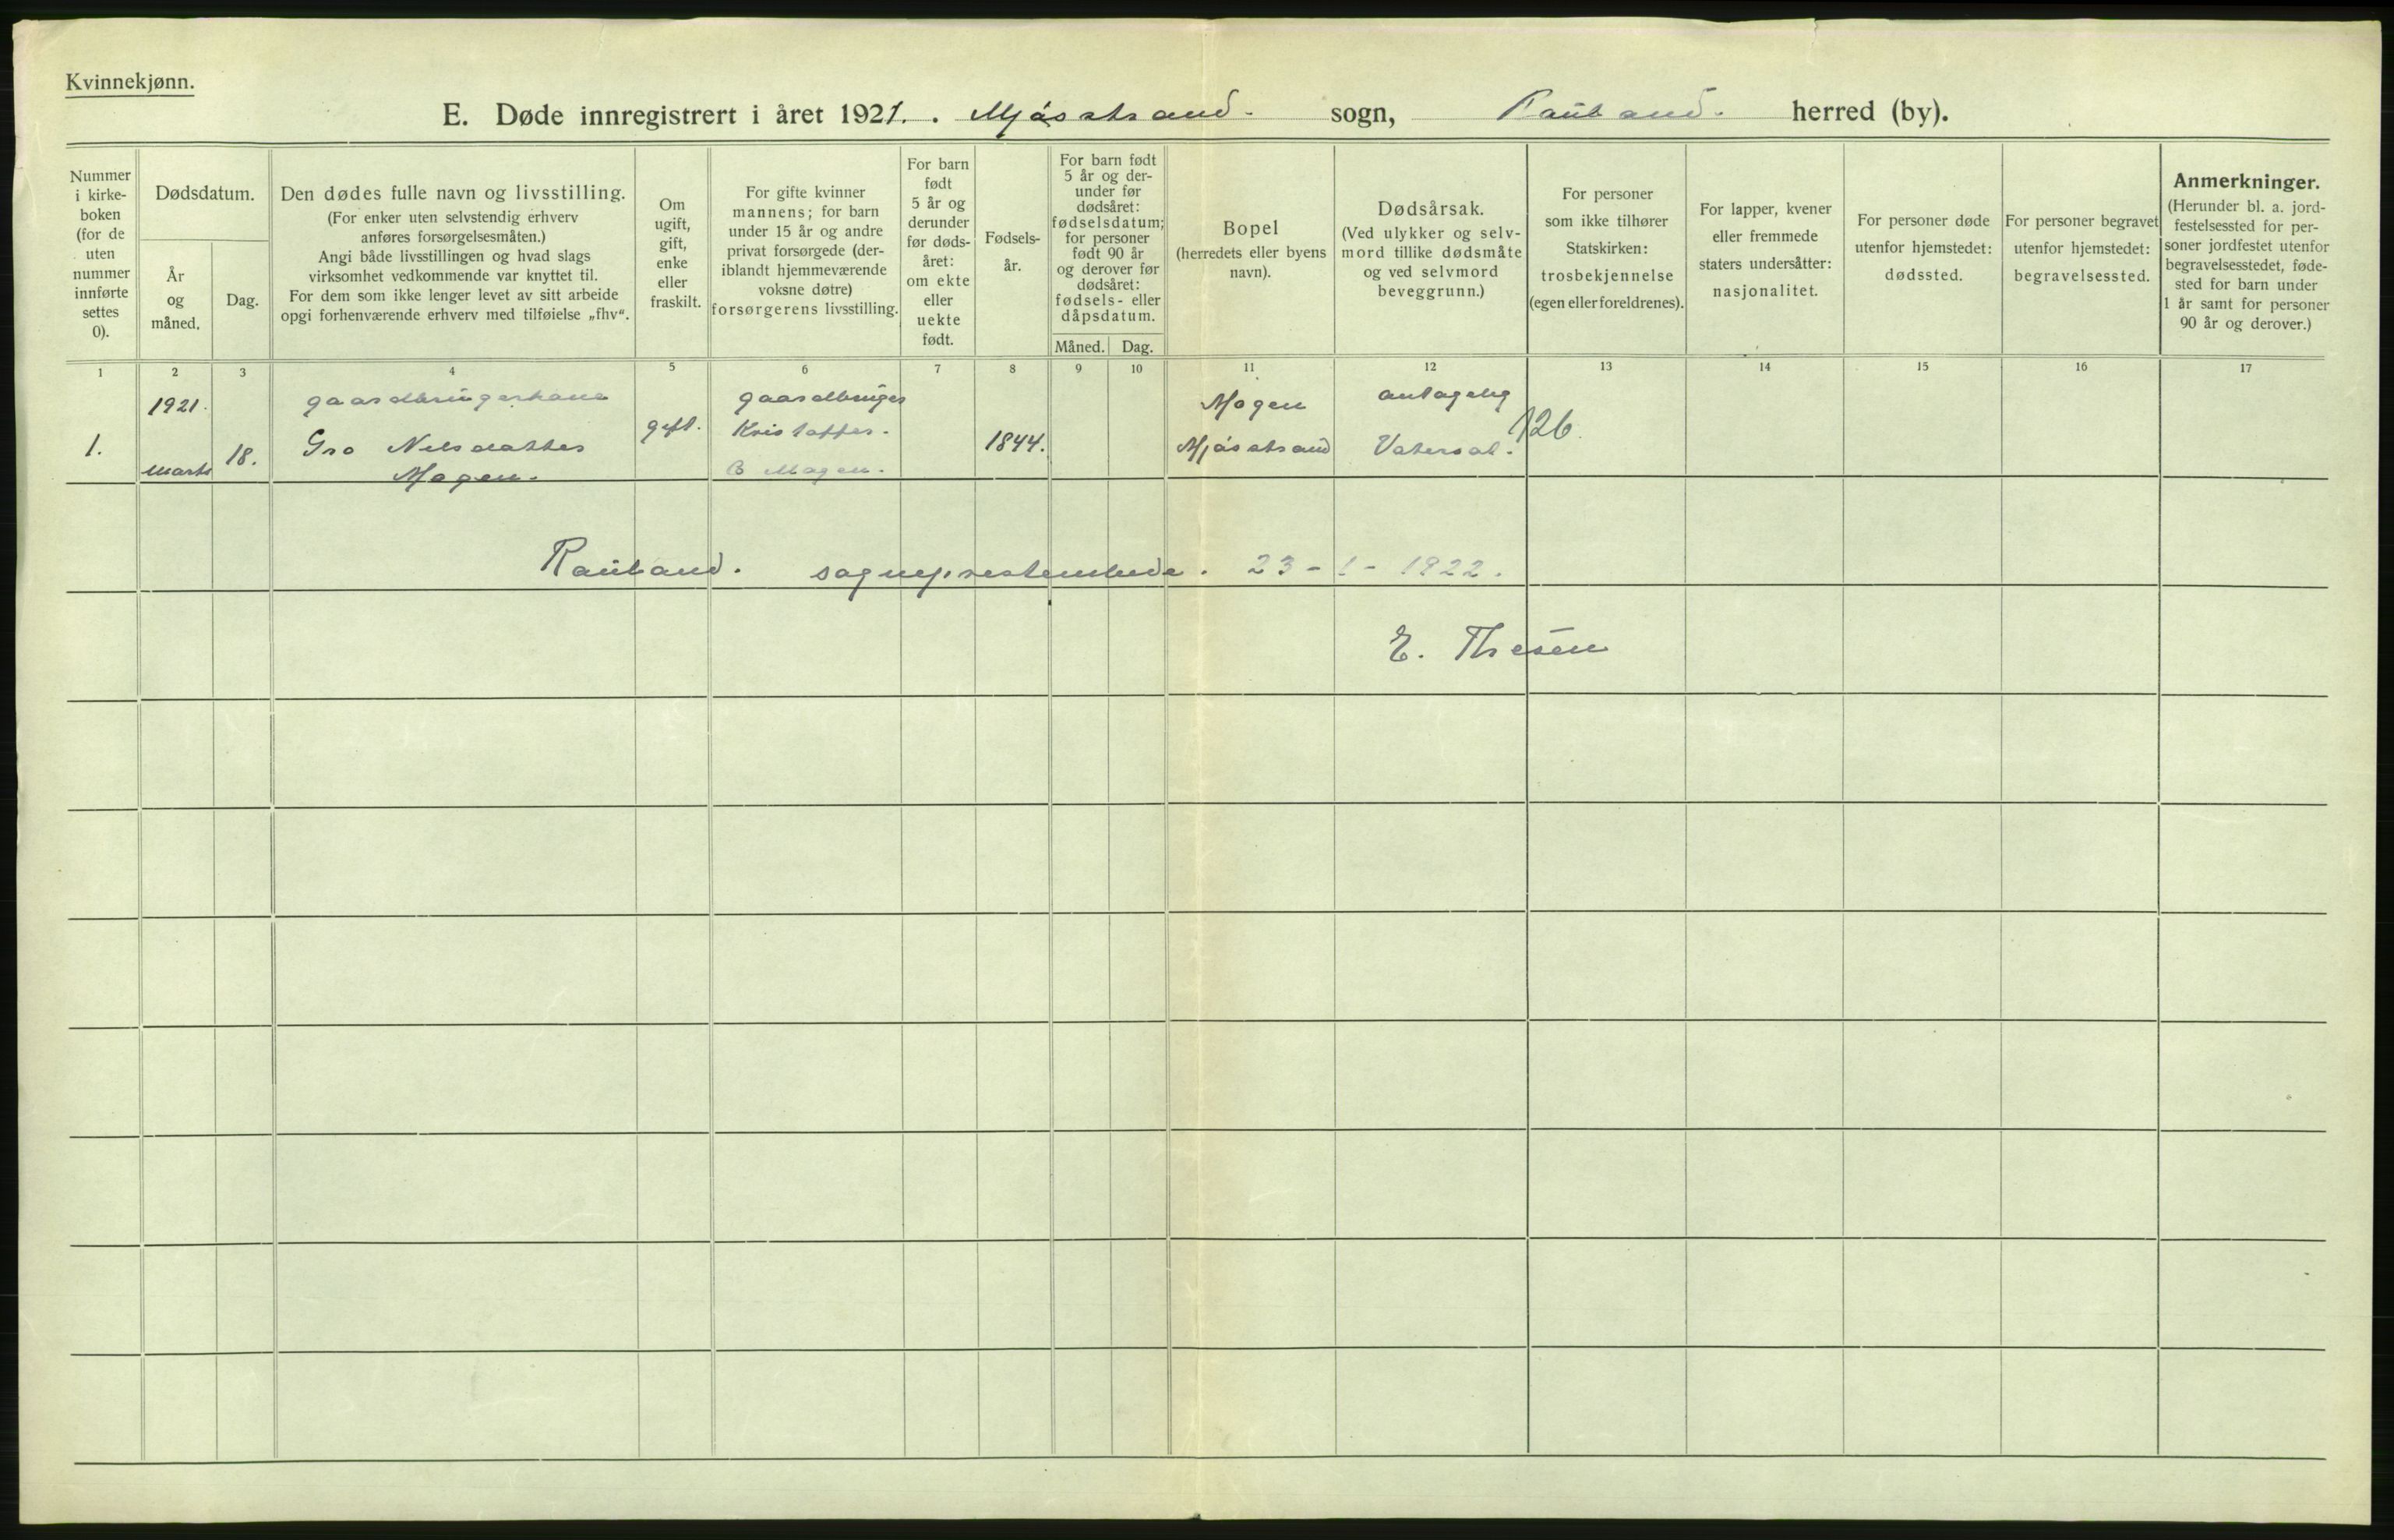 Kvinnekjønn.
E. Døde innregistrert i året 1921. . Mjösstrand. sogn, Rauland. herred (by).
Nummer
i kirke-
boken
(for de
uten
nummer
innførte
settes
0).
Dødsdatum.
År
og
måned.
Dag.
Den dødes fulle navn og livsstilling.
(For enker uten selvstendig erhverv
anføres forsørgelsesmåten.)
Angi både livsstillingen og hvad slags
virksomhet vedkommende var knyttet til.
For dem som ikke lenger levet av sitt arbeide
opgi forhenværende erhverv med tilføielse „fhv“.
Om
ugift,
gift,
enke
eller
fraskilt.
For gifte kvinner
mannens; for barn
under 15 år og andre
privat forsørgede (der-
iblandt hjemmeværende
voksne døtre)
forsørgerens livsstilling.
For barn
født
5 år og
derunder
før døds-
året:
om ekte
eller
uekte
født.
Fødsels-
år.
For barn født
5 år og der-
under før
dødsåret:
fødselsdatum;
for personer
født 90 år
og derover før
dødsåret:
fødsels- eller
dåpsdatum.
Måned. Dag.
Bopel
(herredets eller byens
navn).
Dødsårsak.
(Ved ulykker og selv-
mord tillike dødsmåte
og ved selvmord
beveggrunn.)
For personer
som ikke tilhører
Statskirken:
trosbekjennelse
(egen eller foreldrenes).
For lapper, kvener
eller fremmede
staters undersåtter:
nasjonalitet.
For personer døde
utenfor hjemstedet:
dødssted.
For personer begravet
utenfor hjemstedet:
begravelsessted.
Anmerkninger.
(Herunder bl. a. jord-
festelsessted for per-
soner jordfestet utenfor
begravelsesstedet, føde-
sted for barn under
1 år samt for personer
90 år og derover.)
1 2 3 4 5 6 7 8 9 10 11 12 13 14 15 16 17
1.
1921.
marts
18.
gaardbrugerkone
Gro Nilsdatter
Mogen.
gift.
gaardbruger
Kristoffer.
B Mogen.
1844.
Mogen
Mjösstrand
antagelig
Vatersot.
126.
Rauland. sogneprestembede. 23-1-1922.
E. Thesen